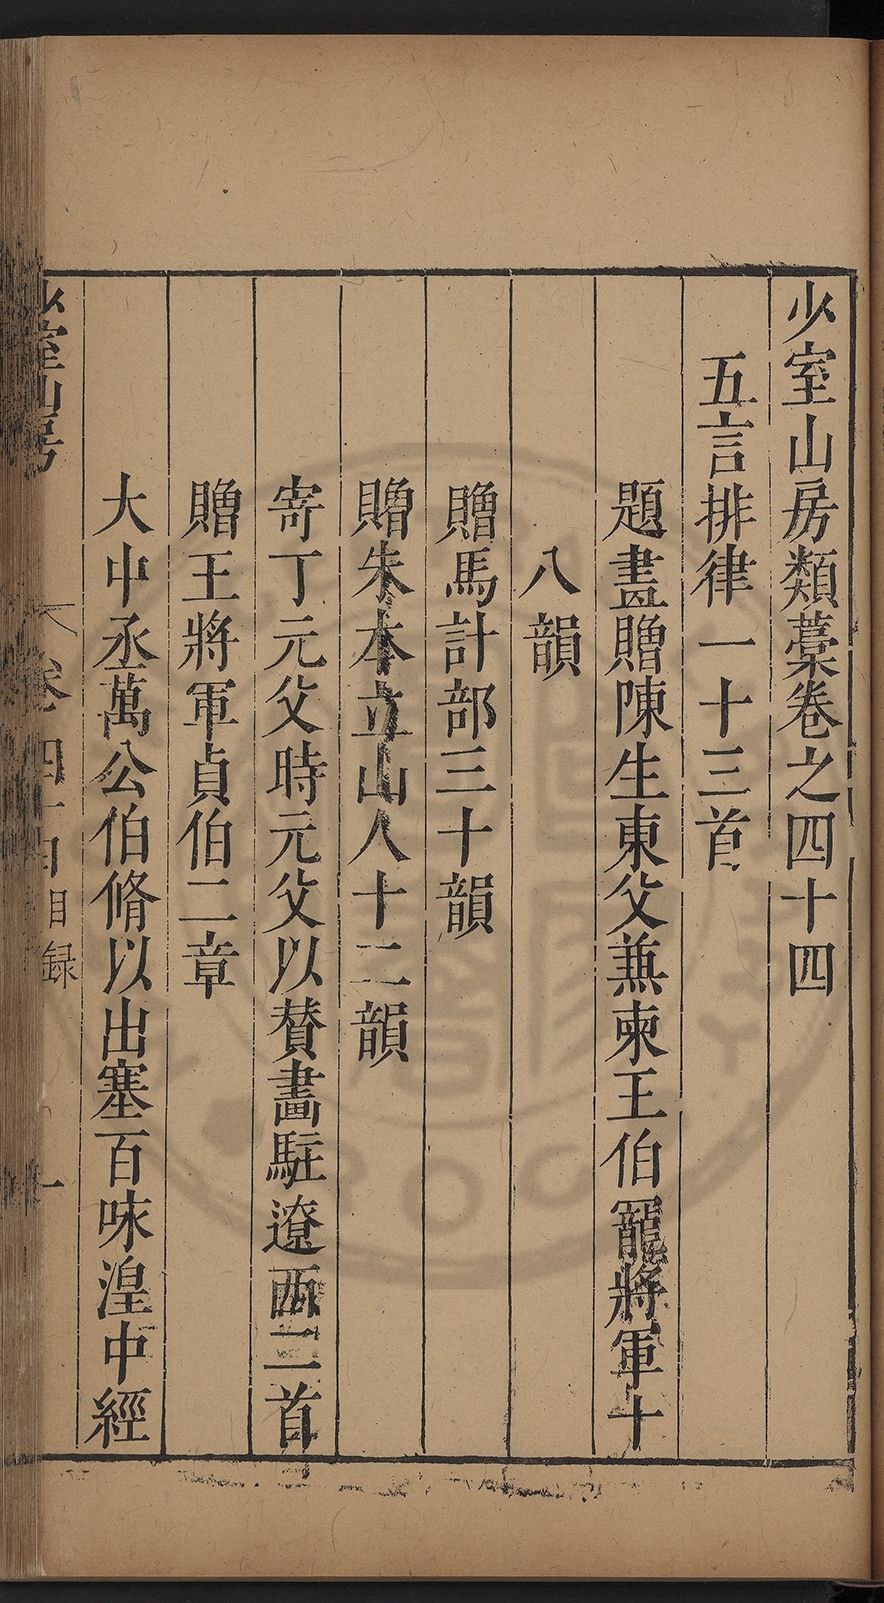 少室山房類藁卷之四十四
五言排律一十三首
題畫贈陳生東父兼柬王伯寵將軍十
八韻
贈馬計部三十韻
贈朱本立山人十二韻
寄丁元父時元父以贊畫駐遼西二首
贈王將軍貞伯二章
大中丞萬公伯脩以出塞百咏湟中經
少室山房 卷四十四目録 一